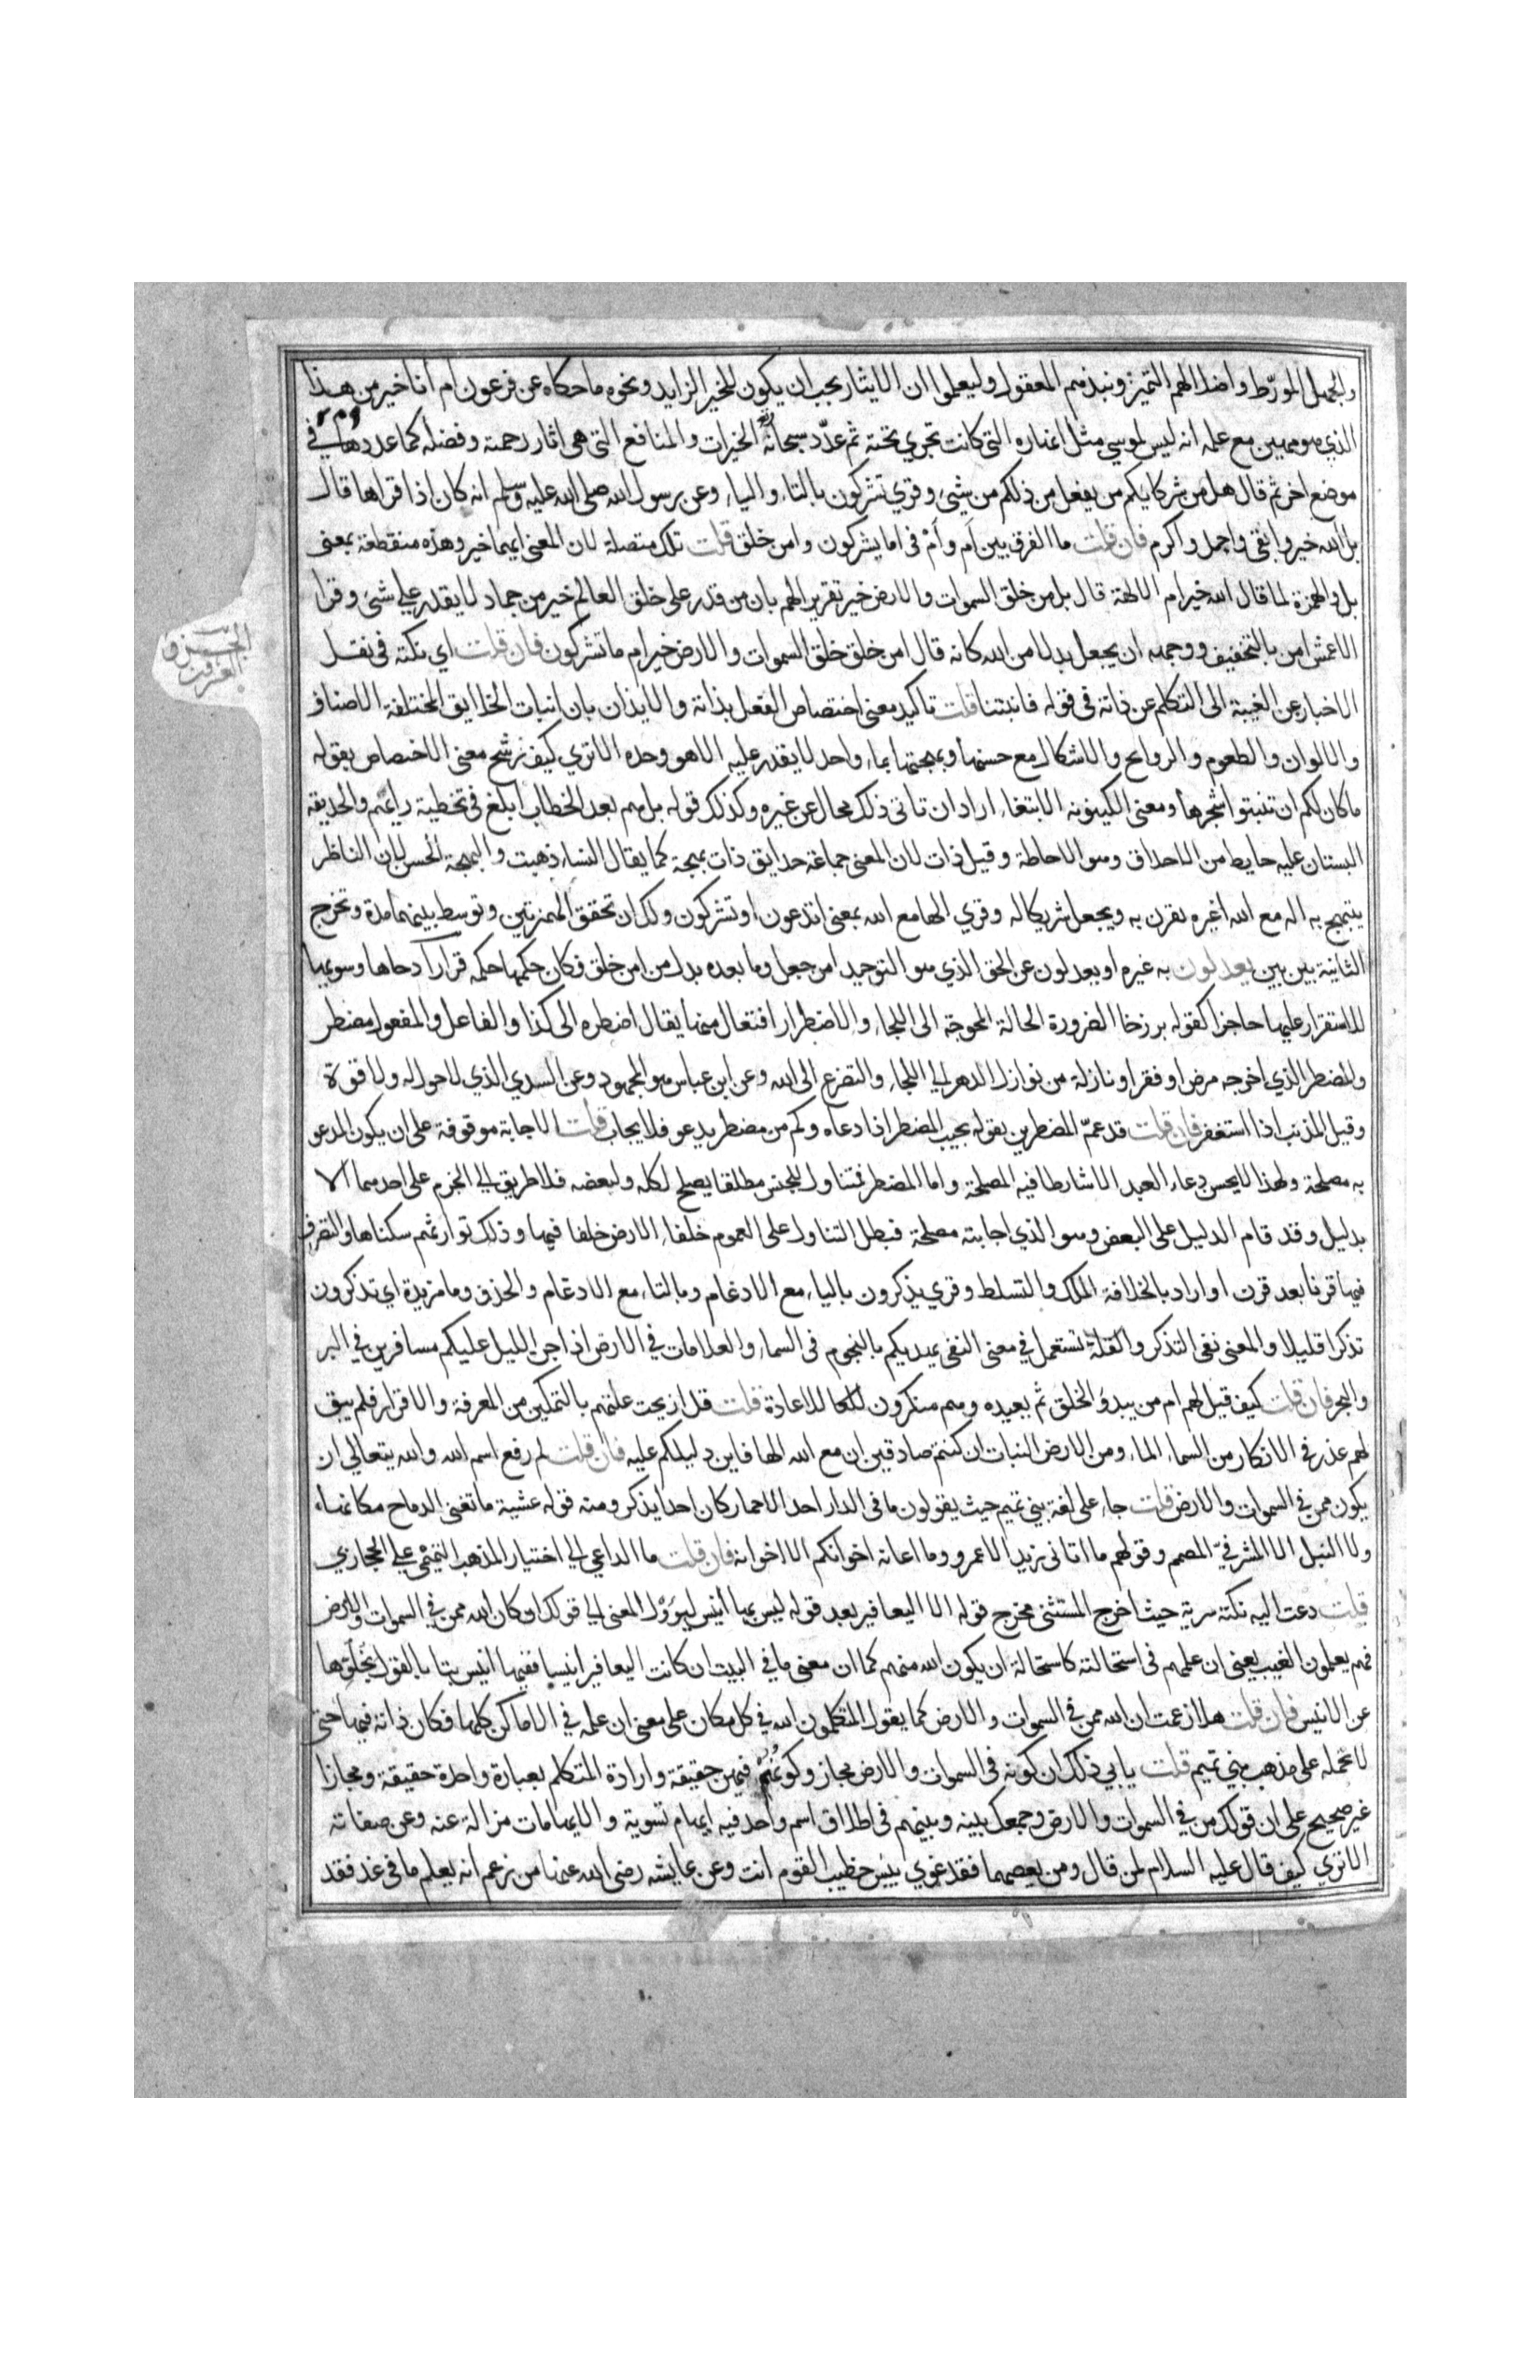 والجهل المورّط واضلالهم التمييز ونبذهم المعقول وليعلموا ان الايثار يجب ان يكون للخير الزايد ونحوه ما حكاه عن فرعون ام أنا خير من هذا
الذي هو مهين مع علمه انه ليس لموسي مثل انهاره التي كانت تجري تحته ثم عدّد سبحانه الخيرات والمنافع التي هي اثار رحمته وفضله كما عددها في
موضع اخر ثم قال هل من شركايكم من يفعل من ذلكم من شيء وقري تشركون بالتاء والياء وعن رسول الله صلى الله عليه وسلم انه كان اذا قراها قال
بل الله خير وابقى واجل واكرم فان قلت ما الفرق بين أم وأم في اما يشركون وامن خلق قلت تلك متصلة لان المعنى ايهما خير وهذه منقطعة بمعنى
بل والهمزة لما قال الله خير ام الالهة قال بل من خلق السموات والارض خير تقريرا لهم بان من قدر على خلق العالم خير من جماد لا يقدر على شيء وقرا
الاعمش امن بالتخفيف ووجهه ان يجعل بدلا من الله كانه قال امن خلق خلق السموات والارض خير ام ما تشركون فان قلت اي نكتة في نقل
الاخبار عن الغيبة الى التكلم عن ذاته في قوله فانبتنا قلت تاكيد معنى اختصاص الفعل بذاته والايذان بان انبات الحدايق المختلفة الاصناف
والالوان والطعوم والروايح والاشكال مع حسنها وبهجتها بماء واحد لا يقدر عليه الا هو وحده الا تري كيف رشح معنى الاختصاص بقوله
ما كان لكم ان تنبتوا شجرها ومعنى الكينونة الابتغاء اراد ان تاتي ذلك محال عن غيره وكذلك قوله بل هم بعد الخطاب ابلغ في تخطية رايهم والحديقة
البستان عليه حايط من الاحداق وهو الاحاطة وقيل ذات لان المعنى جماعة حدايق ذات بهجة كما يقال النساء ذهبت والبهجة الحسن لان الناظر
يبتهج به اله مع الله اغيره يقرن به ويجعل شريكا له وقري الها مع الله بمعنى اتدعون او تشركون ولك ان تحقق الهمزتين وتوسط بينهما مدة وتخرج
الثانية بين بين يعدلون به غيره او يعدلون عن الحق الذي هو التوحيد امن جعل وما بعده بدل من امن خلق فكان حكمها حكمه قرارا دحاها وسويها
للاستقرار عليها حاجزا كقوله برزخا الضرورة الحالة المحوجة الى اللجاء والاضطرار افتعال منها يقال اضطره الى كذا والفاعل والمفعول مضطر
والمضطر الذي احوجه مرض او فقر او نازلة من نوازل الدهر الى اللجاء والتضرع الى الله وعن ابن عباس هو المجهود وعن السدي الذي لا حول له ولا قوة
وقيل المذنب اذا استغفر فان قلت قد عمّ المضطرين بقوله يجيب المضطر اذا دعاه وكم من مضطر يدعو فلا يجاب قلت الاجابة موقوفة على ان يكون المدعو
به مصلحة ولهذا لا يحسن دعاء العبد الا شارطا فيه المصلحة واما المضطر فمتناول للجنس مطلقا يصلح لكله ولبعضه فلا طريق الى الجزم على احدهما الا
بدليل وقد قام الدليل على البعض وهو الذي اجابته مصلحة فبطل التناول على العموم خلفاء الارض خلفا فيها وذلك توارثهم سكناها والتصرف
فيها قرنا بعد قرن او اراد بالخلافة الملك والتسلط وقري يذكرون بالياء مع الادغام وبالتاء مع الادغام والحذف وما مزيدة اي تذكرون
تذكرا قليلا والمعنى نفي التذكر والقلة تستعمل في معنى النفي يهديكم بالنجوم في السماء والعلامات في الارض اذا جن الليل عليكم مسافرين في البر
والبحر فان قلت كيف قيل لهم ام من يبدؤ الخلق ثم يعيده وهم منكرون للاعادة قلت قد ازيحت علتهم بالتمكين من المعرفة والاقرار فلم يبق
لهم عذر في الانكار من السماء الماء ومن الارض النبات ان كنتم صادقين ان مع الله الها فاين دليلكم عليه فان قلت لم رفع اسم الله والله يتعالى ان
يكون ممن في السموات والارض قلت جاء على لغة بني تميم حيث يقولون ما في الدار احد الا حمار كان احدا لم يذكر ومنه قوله عشية ما تغنى الرماح مكانها
ولا النبل الا المشرفيّ المصمم وقولهم ما اتاني زيد الا عمرو وما اعانه اخوانكم الا اخوانه فان قلت ما الداعي الى اختيار المذهب التميمي على الحجازي
قلت دعت اليه نكتة سرية حيث اخرج المستثنى مخرج قوله الا اليعافير بعد قوله ليس بها أنيس ليؤول المعنى الى قولك ان كان الله ممن في السموات والارض
فهم يعلمون الغيب يعني ان علمهم في استحالته كاستحالة ان يكون الله منهم كما ان معنى ما في البيت ان كانت اليعافير انيسا ففيها انيس بتا بالقول بخلوها
عن الانيس فان قلت هلا زعمت ان الله ممن في السموات والارض كما يقول المتكلمون الله في كل مكان على معنى ان علمه في الاماكن كلها فكان ذاته فيها حتى
لا تحمله على مذهب بني تميم قلت يابي ذلك ان كونه في السموات والارض مجاز وكونهم فيهن حقيقة وارادة المتكلم بعبارة واحدة حقيقة ومجازا
غير صحيح على ان قولك من في السموات والارض وجمعك بينه وبينهم في اطلاق اسم واحد فيه ايهام تسوية والايهامات مزالة عنه وعن صفاته
الا تري كيف قال عليه السلام لمن قال ومن يعصهما فقد غوي بيس خطيب القوم انت وعن عايشه رضي الله عنها من زعم انه يعلم ما في غد فقد
الجزو
العشرون